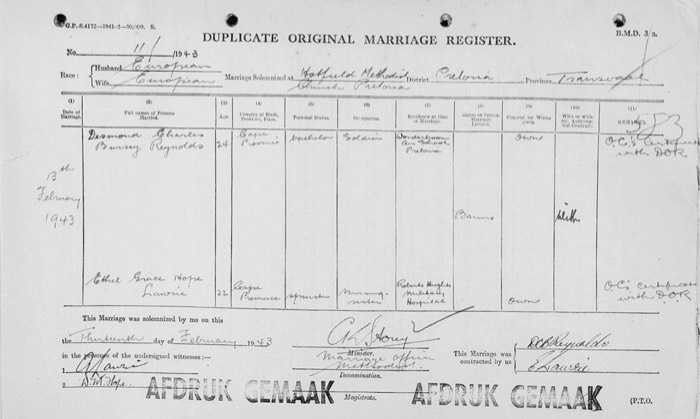 G.P.-S.4172—1941-2—50,000. S.
DUPLICATE ORIGINAL MARRIAGE REGISTER.
B.M.D. 3/a.
No. 11/1943
Race: Husband European
Wife European
Marriage Solemnized at Hatfield Methodist Church Pretoria District Pretoria Province Transvaal
383
(1) (2) (3) (4) (5) (6) (7) (8) (9) (10) (11)
Date of Marriage. Full names of Persons Married. Age. Country of Birth, Province, Town. Personal Status. Occupation. Residence at time of Marriage. Banns or Marriage Licence. Consent by Whom given. REMARKS.
Desmond Charles Bursey Reynolds 24 Cape Province bachelor Soldier Wonderboom Air School Pretoria Own O.C.'s Certificate with D.O.R.
13th
February
1943
Banns With
Ethel Grace Hope Lawrie 22 Cape Province spinster Nursing sister Roberts Heights Military Hospital Own O.C.'s Certificate with D.O.R.
This Marriage was solemnized by me on this
the Thirteenth day of February 1943
Minister.
Marriage officer
in the presence of the undersigned witnesses:—
Methodist
Denomination.
This Marriage was contracted by us
DCBReynolds
ELawrie
1
2
Magistrate.
AFDRUK GEMAAK AFDRUK GEMAAK
(P.T.O.